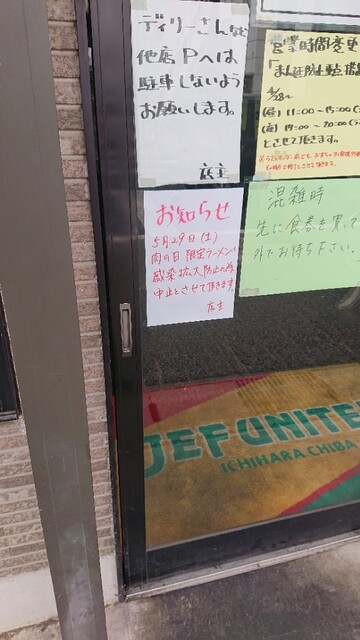 デイリーさんなど
他店Pへは
駐車しないよう
お願いします。
店主
営業時間変更
「まん延防止
4/28〜
(昼) 11:00〜15:00
(夜) 17:00〜20:00
とさせて頂きます。
お知らせ
5月29日(土)
肉の日限定ラーメンは
感染拡大防止の為
中止とさせて頂きます。
店主
混雑時
先に食券を買って
外でお待ち下さい。
JEF UNITE
ICHIHARA CHIBA